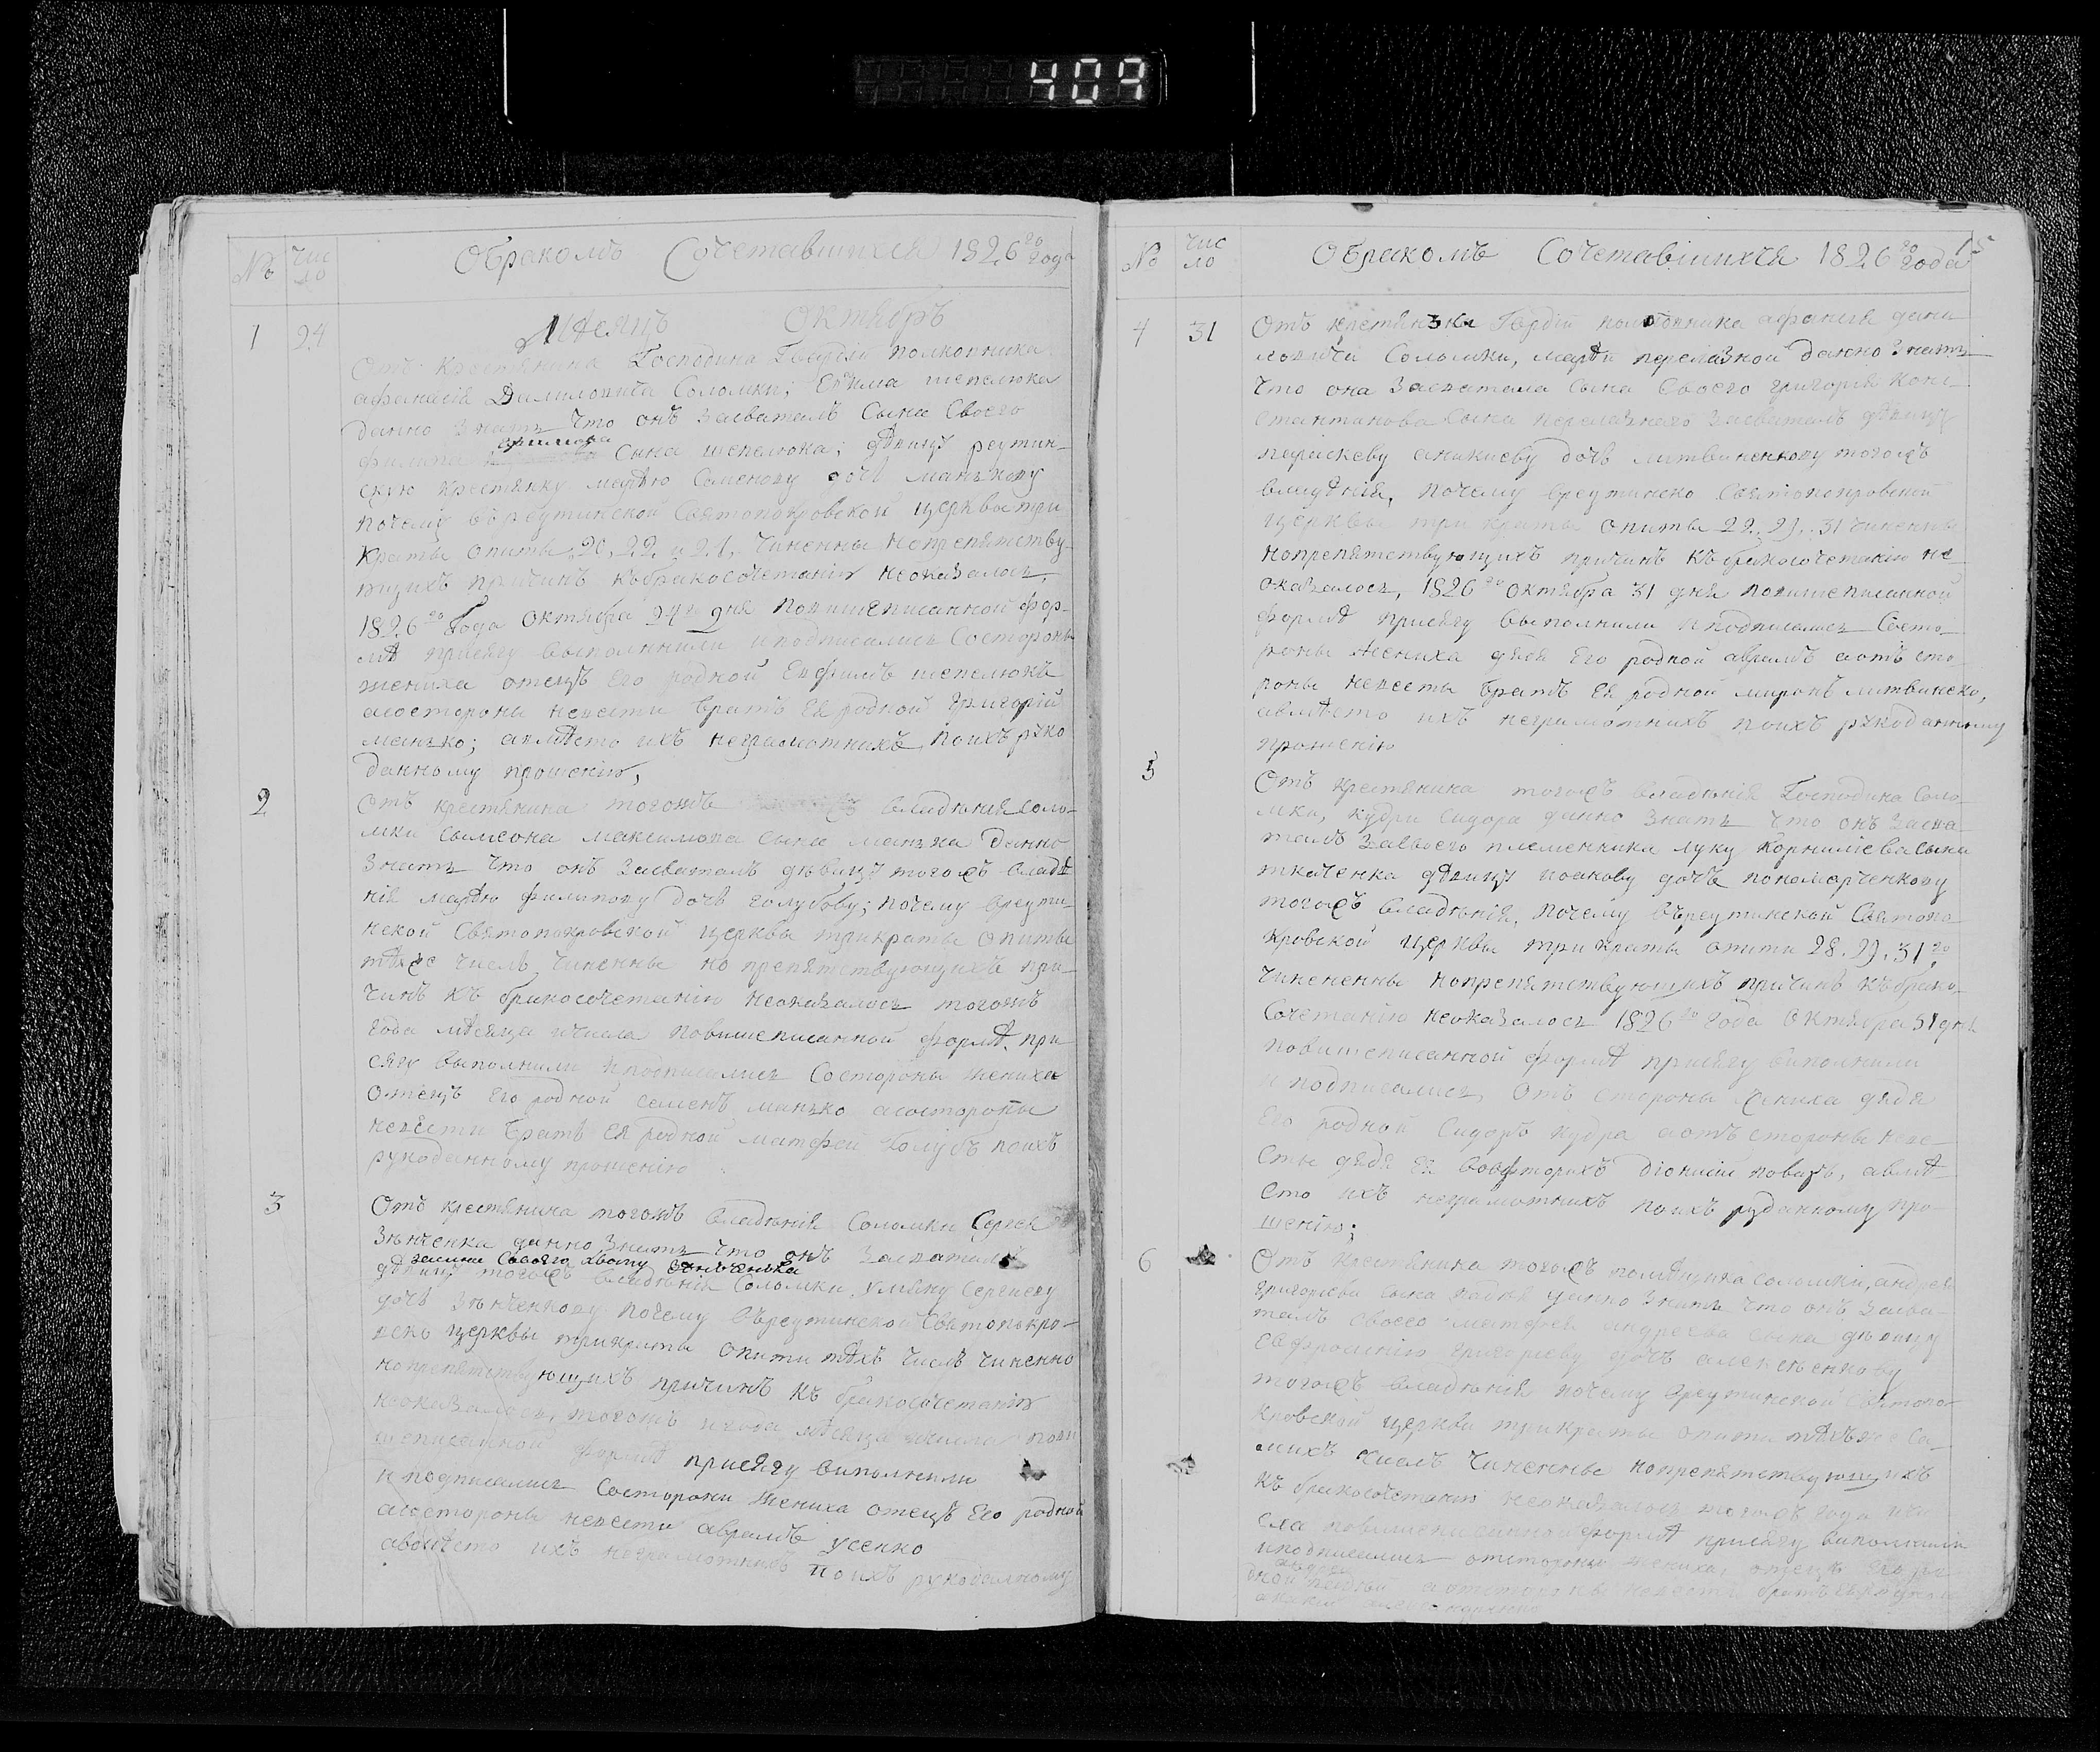 407
№
Чис
ло
О бракомъ Сочетавшихся 1826го Года
1 24
Мѣсяцъ Октябръ
Отъ Крестянина Господина Гвардіи полковника
афанасія Даниловича Соломки; Евѳима шепелюка
данно знать что онъ засваталъ Сына Своего
филипа Сына шепелюка; дѣвицу реутин-
скую крестянку марѳю Семенову дочь манзкову
почему въ реутинской Святопокровской церквы три
краты опиты 20, 22 и 21, чиненны но препятству-
ющихъ причинъ къ бракосочетанію неоказалось,
1826го Года Октября 24го дня повишеписанной фор-
мѣ присягу выполнили и подписались Состороны
жениха отецъ Его родной Евфимъ шепелюкъ
асостороны невести братъ Ея родной Григорій
манзко; авмѣсто ихъ неграмотнихъ поихъ руко
данному прошенію,
2
Отъ крестянина тогожъ владѣнія Соло-
мки Сымеона максимова сына манзка данно
знать что онъ засваталъ дѣвицу тогожъ владѣ
нія марѳю филипову дочь голубову; почему вреути-
нской Святопокровской церквы трикраты опиты
тѣхже числъ чиненны но препятствующихъ при-
чинъ къ бракосочетанію неоказалось тогожъ
года мѣсяца ичисла повишеписанной формѣ при
сягу выполнили иподписались Состороны жениха
отецъ Его родной семенъ манзко асостороны
невести братъ Ея родной матфей Голубъ поихъ
рукоданному прошенію
3
Отъ крестянина тогожъ владѣнія Соломки Сергея
Зѣнченка данно знать что онъ засваталъ
Своего Зѣнченька
дѣвицу тогожъ владѣнія Соломки, Уляну Сергиеву
дочь Зѣнченкову почему въреутинской Святопокро-
вско церквы трикраты опити тѣхъ числъ чиненно
но препятствующихъ причинъ къ бракосочетанію
неоказалось, тогожъ игода мѣсяца ичисла повы
шеписанной формѣ присягу виполнили
и подписались Состороны жениха отецъ Его родной
асостороны невести аврамъ усенко
авмѣсто ихъ неграмотнихъ поихъ рукоданному
№
Чис
ло
О бракомъ Сочетавшихся 1826го Года
15
4 31
Отъ крестянзки Гвардіи полковника афанасія дани
ловича Соломки, марѳи перелазной данно знать
что она засватала сына Своего григорія Конс-
тантинова сына перелазнаго засваталъ дѣвицу
параскеву аникиеву дочь литвиненкову тогожъ
владѣнія, почему вреутинско Святопокровской
церквы три краты опиты 22. 29. 31 чиненны
но препятствующихъ причинъ къ бракосочетанію не
оказалось, 1826го Октября 31 дня повишеписанной
формѣ присягу выполнили и подписались Состо-
роны жениха дядя Его родной аврамъ аотъ сто-
роны невесты братъ Ея родной миронъ литвиненко,
авмѣсто ихъ неграмотнихъ поихъ рукоданному
прошенію
5
Отъ крестянина тогожъ владѣнія Господина Соло-
мки, кудри Сидора данно знать что онъ засва-
талъ засвоего племенника луку Корниліева сына
ткаченка дѣвицу иоакову дочь пономарченкову
тогожъ владѣнія, почему въреутинской Святопо-
кровской церквы трикраты опити 28. 29. 31го
чинененны но препятствующихъ причинъ къ брако-
Сочетанію неоказалось 1826го Года Октября 31 дня
повишеписанной формѣ присягу виполнили
и подписались, Отъ стороны жениха дядя
Его родной Сидоръ кудра аотъ стороны неве-
сты дядя Ея діонисій поваръ, авмѣ-
сто ихъ неграмотнихъ поихъ руданному про-
шенію;
6
Отъ крестянина тогожъ помѣщика Соломки, андрея
григориева сына данно знать что онъ засва-
талъ своего матфея андреева сына дѣвицу
евфросинію григориеву дочь
тогожъ владѣнія почему вреутинской Святопо-
кровской церкви трикраты опити тѣхъже са-
михъ числъ чинененны но препятствующихъ
къ бракосочетанію неоказалось тогожъ года ичи
сла повишеписанной формѣ присягу виполнили
иподписались отстороны жениха, отецъ Его ро-
дной андрей аотстороны невести братъ Ея родной